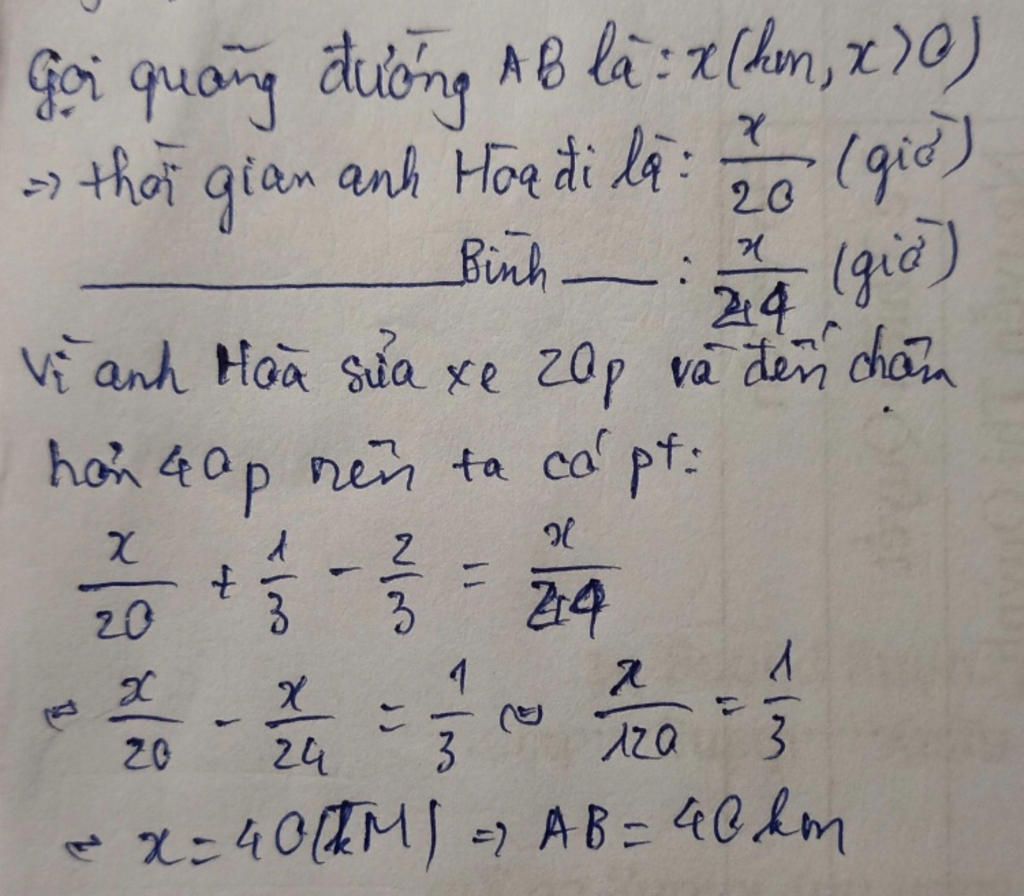 Gọi quãng đường AB là: x(km, x>0)
=> thời gian anh Hòa đi là: x/20 (giờ)
____ Bình ____ : x/24 (giờ)
Vì anh Hoà sửa xe 20p và đến chậm
hơn 40p nên ta có pt:
x/20 + 1/3 - 2/3 = x/24
⇔ x/20 - x/24 = 1/3 ⇔ x/120 = 1/3
⇔ x = 40(KM) => AB = 40 km